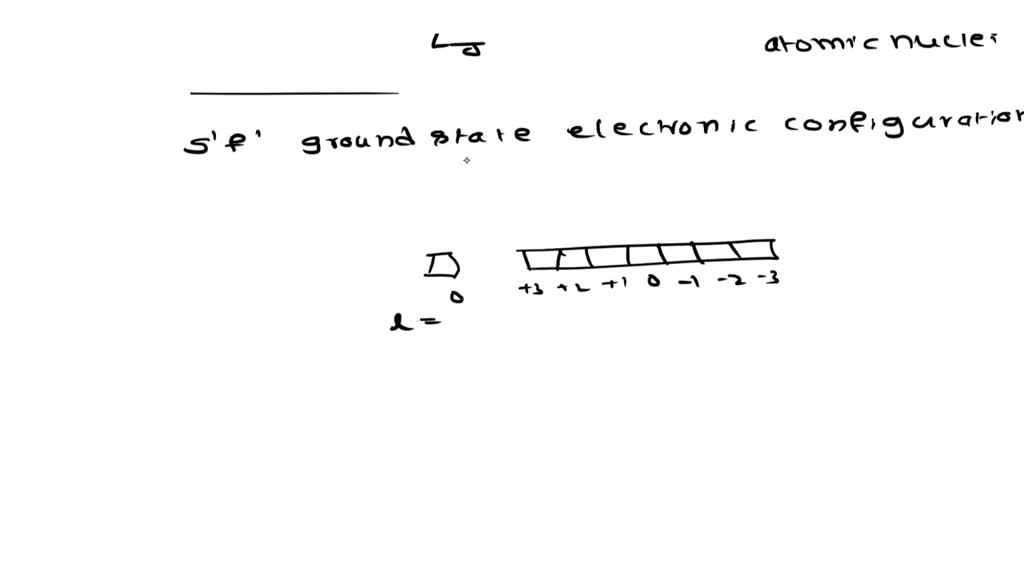 atomic nuclei
s'f' ground state electronic configuration
+3 +2 +1 0 -1 -2 -3
0
l =